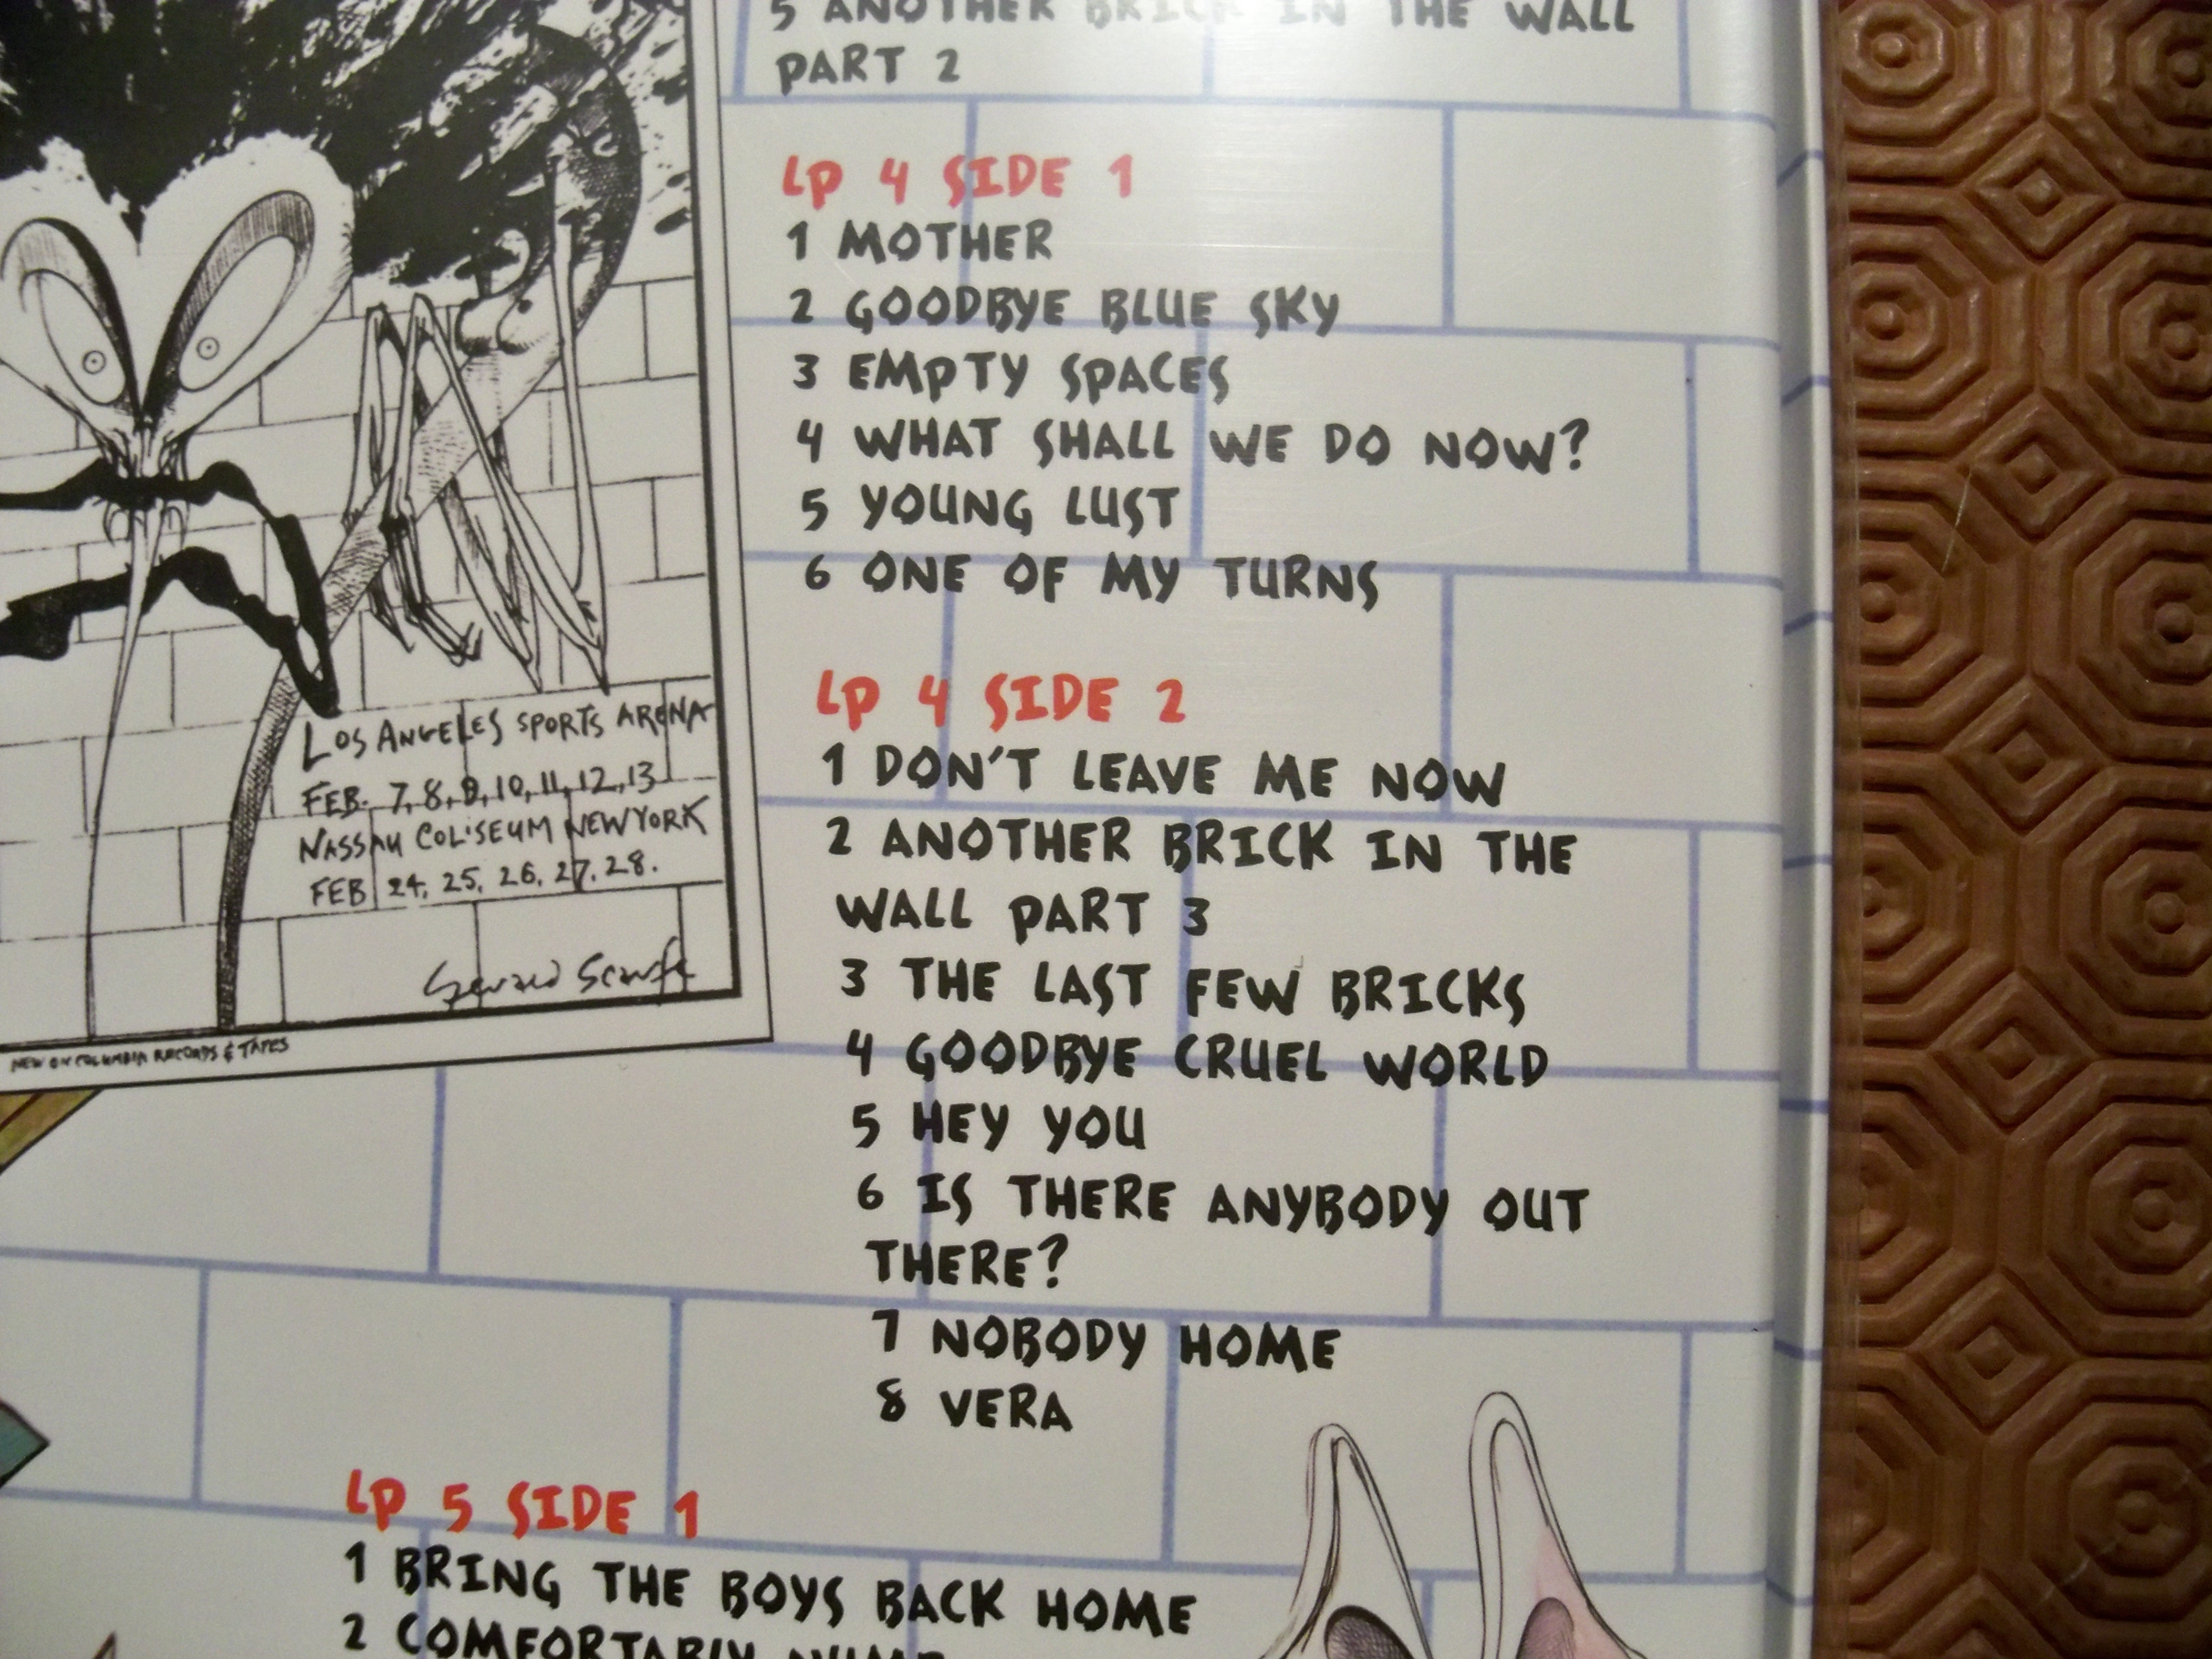 5 ANOTHER BRICK IN THE WALL
PART 2
LP 4 SIDE 1
1 MOTHER
2 GOODBYE BLUE SKY
3 EMPTY SPACES
4 WHAT SHALL WE DO NOW?
5 YOUNG LUST
6 ONE OF MY TURNS
LP 4 SIDE 2
1 DON'T LEAVE ME NOW
2 ANOTHER BRICK IN THE
WALL PART 3
3 THE LAST FEW BRICKS
4 GOODBYE CRUEL WORLD
5 HEY YOU
6 IS THERE ANYBODY OUT
THERE?
7 NOBODY HOME
8 VERA
LOS ANGELES SPORTS ARENA
FEB. 7, 8, 9, 10, 11, 12, 13
NASSAU COLISEUM NEW YORK
FEB 24, 25, 26, 27, 28.
Gerald Scarfe
NEW ON COLUMBIA RECORDS & TAPES
LP 5 SIDE 1
1 BRING THE BOYS BACK HOME
2 COMFORTABLY NUMB